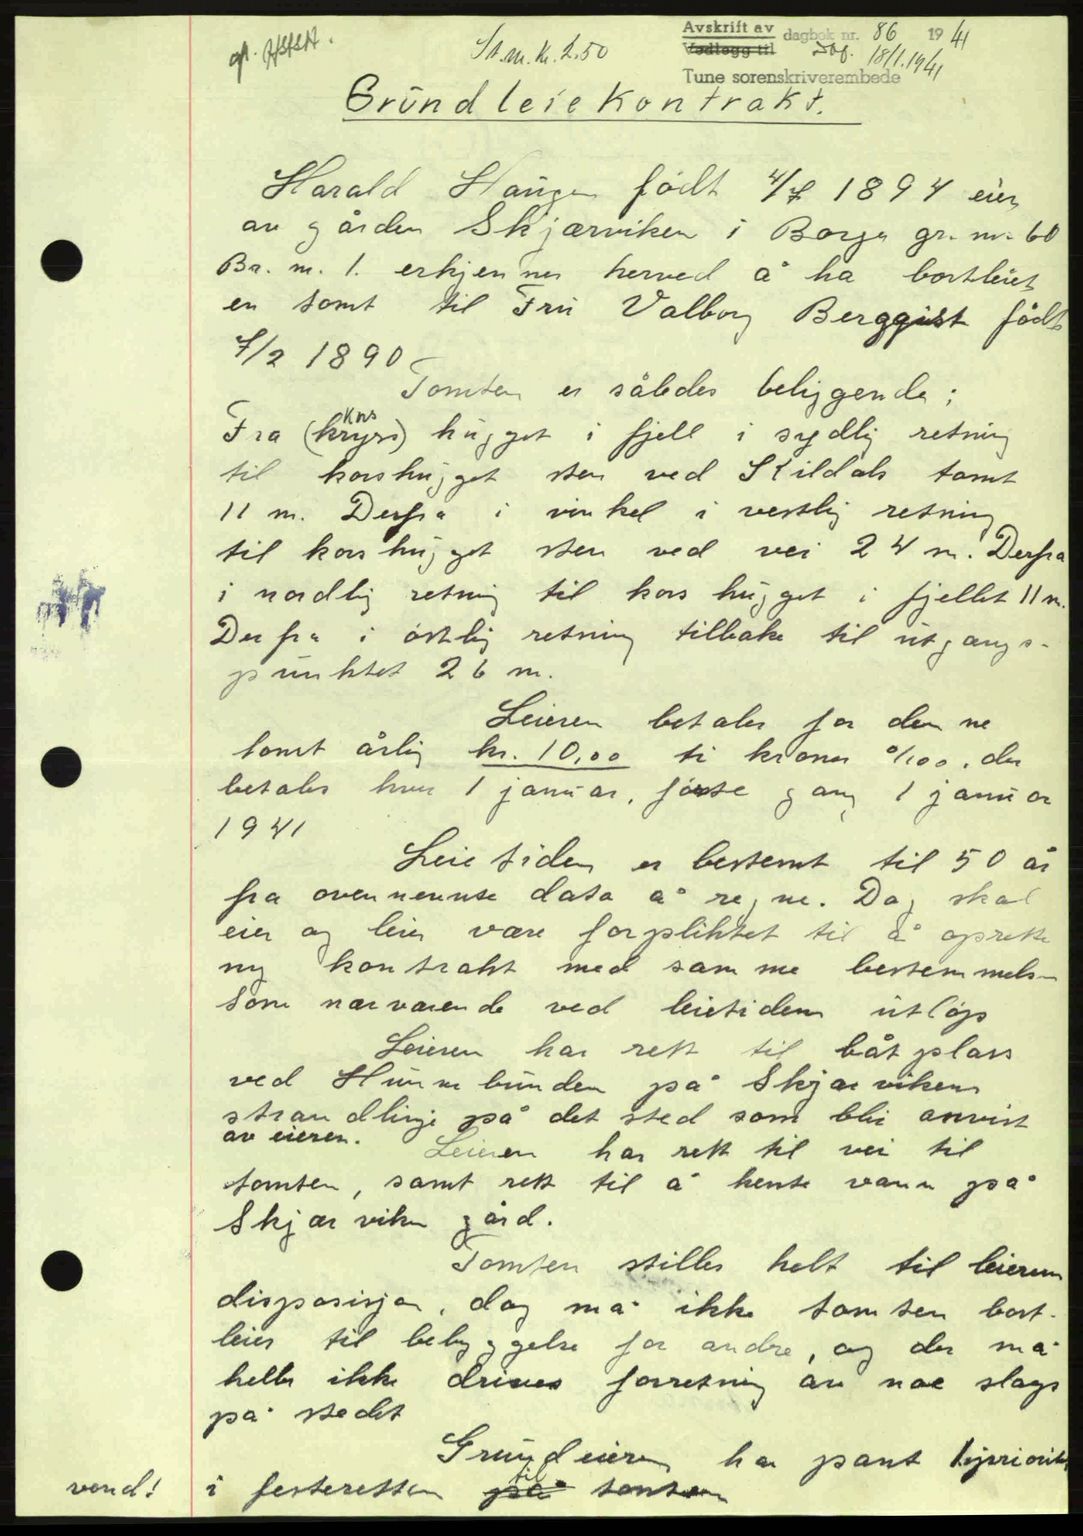 St.m. kr. 2.50
Avskrift av dagbok nr. 86 1941
Vedlegg til Dbf. 18/1.1941
Tune sorenskriverembede
Grundleiekontrakt.
Harald Haugen født 4/7 1894 eier
av gården Skjærviken i Borge gr. nr. 60
Br. nr. 1. erkjenner herved å ha bortleiet
en tomt til Fru Valborg Bergqist født
7/2 1890
Tomten er således beliggende;
kors
Fra (kryss) hugget i fjell i sydlig retning
til korshugget sten ved Kildals tomt
11 m. Derfra i vinkel i vestlig retning
til korshugget sten ved vei 24 m. Derfra
i nordlig retning til kors hugget i fjellet 11 m.
Derfra i østlig retning tilbake til utgangs-
punktet 26 m.
Leieren betaler for denne
tomt årlig kr. 10,00 ti kroner 0/00, der
betales hver 1 januar, første gang 1 januar
1941
Leietiden er bestemt til 50 år
fra ovennennte dato å regne. Dog skal
eier og leier være forpliktet til å oprette
ny kontrakt med samme bestemmelser
som nærværende ved leietidens utløp
Leieren har rett til båtplass
ved Hunnebunden på Skjærvikens
strandlinje på det sted som blir anvist
av eieren. Leieren har rett til vei til
tomten, samt rett til å hente vann på
Skjærviken gård.
Tomten stilles helt til leierens
disposisjon, dog må ikke tomten bort-
leies til bebyggelse for andre, og der må
heller ikke drives forretning av noe slags
på stedet
Grundeieren har pant 1.prioritet
til
vend! i festeretten på tomten